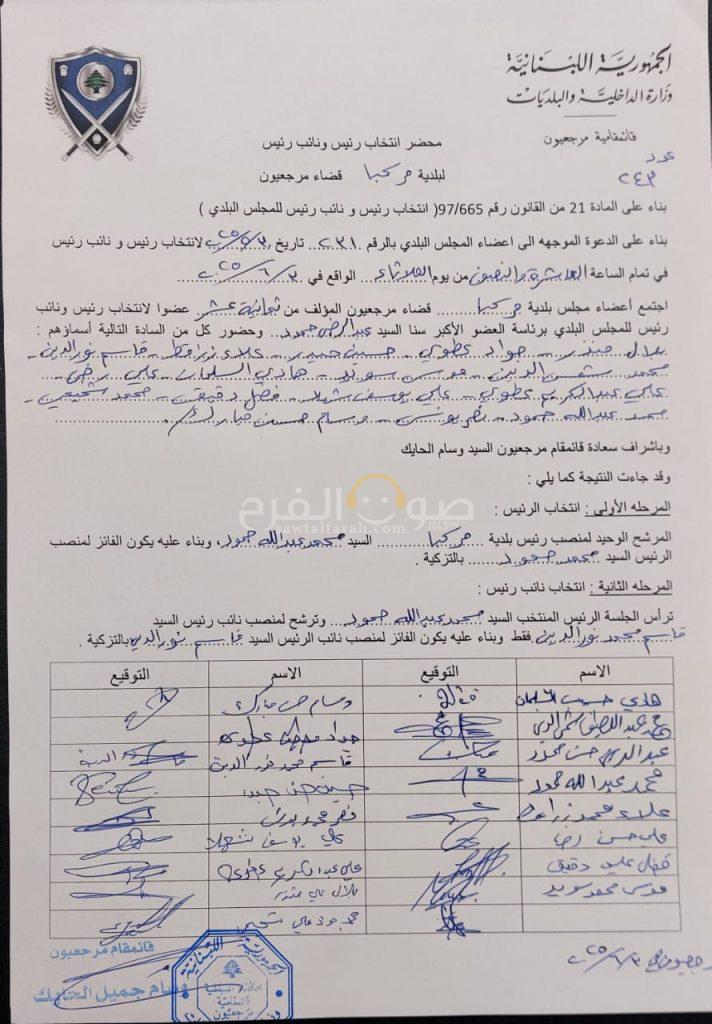 الجمهورية اللبنانية
وزارة الداخلية والبلديات
قائمقامية مرجعيون
عدد
٢٤٣
محضر انتخاب رئيس ونائب رئيس
لبلدية مركبا قضاء مرجعيون
بناء على المادة 21 من القانون رقم 97/665( انتخاب رئيس و نائب رئيس للمجلس البلدي )
بناء على الدعوة الموجهه الى اعضاء المجلس البلدي بالرقم ٢٣١ تاريخ لانتخاب رئيس و نائب رئيس
في تمام الساعة العاشرة والنصف من يوم الثلاثاء الواقع في ٢٠٢٥/٦/٣
اجتمع أعضاء مجلس بلدية مركبا قضاء مرجعيون المؤلف من ثمانية عشر عضوا لانتخاب رئيس ونائب
رئيس للمجلس البلدي برئاسة العضو الأكبر سنا السيد حمود وحضور كل من السادة التالية أسماؤهم :
بلال منذر - جواد عطوي - حسين حميد - علاء زراقط - قاسم نور الدين -
محمد شمس الدين - موسى سويد - هادي السلمان - علي رضى -
علي عبد الكريم عطوي - علي يوسف شهلا - فضل دقيق - محمد شحيمي -
محمد عبدالله حمود - وسام حسن مبارك
وباشراف سعادة قائمقام مرجعيون السيد وسام الحايك
وقد جاءت النتيجة كما يلي :
المرحله الأولى : انتخاب الرئيس :
صوت الفرح
sawtalfarah.com
المرشح الوحيد لمنصب رئيس بلدية مركبا السيد محمد عبدالله حمود ، وبناء عليه يكون الفائز لمنصب
الرئيس السيد محمد حمود بالتزكية .
المرحله الثانية : انتخاب نائب رئيس :
ترأس الجلسة الرئيس المنتخب السيد محمد عبدالله حمود وترشح لمنصب نائب رئيس السيد
قاسم محمد نور الدين فقط وبناء عليه يكون الفائز لمنصب نائب الرئيس السيد قاسم نور الدين بالتزكية .
الاسم التوقيع الاسم التوقيع
هادي حسيب السلمان وسام حسن مبارك
محمد عبد اللطيف شمس الدين جواد عطوي
حسن حمود قاسم محمد نور الدين
محمد عبدالله حمود حسين
علاء محمد زراقط
علي حسن رضا علي يوسف شهلا
فضل علي دقيق علي عبد الكريم عطوي
موسى محمد سويد بلال علي منذر
محمد جواد علي شحيمي
قائمقام مرجعيون
وسام جميل الحايك
الجمهورية اللبنانية
قائمقامية
مرجعيون
٢٠٢٥/٦/٣